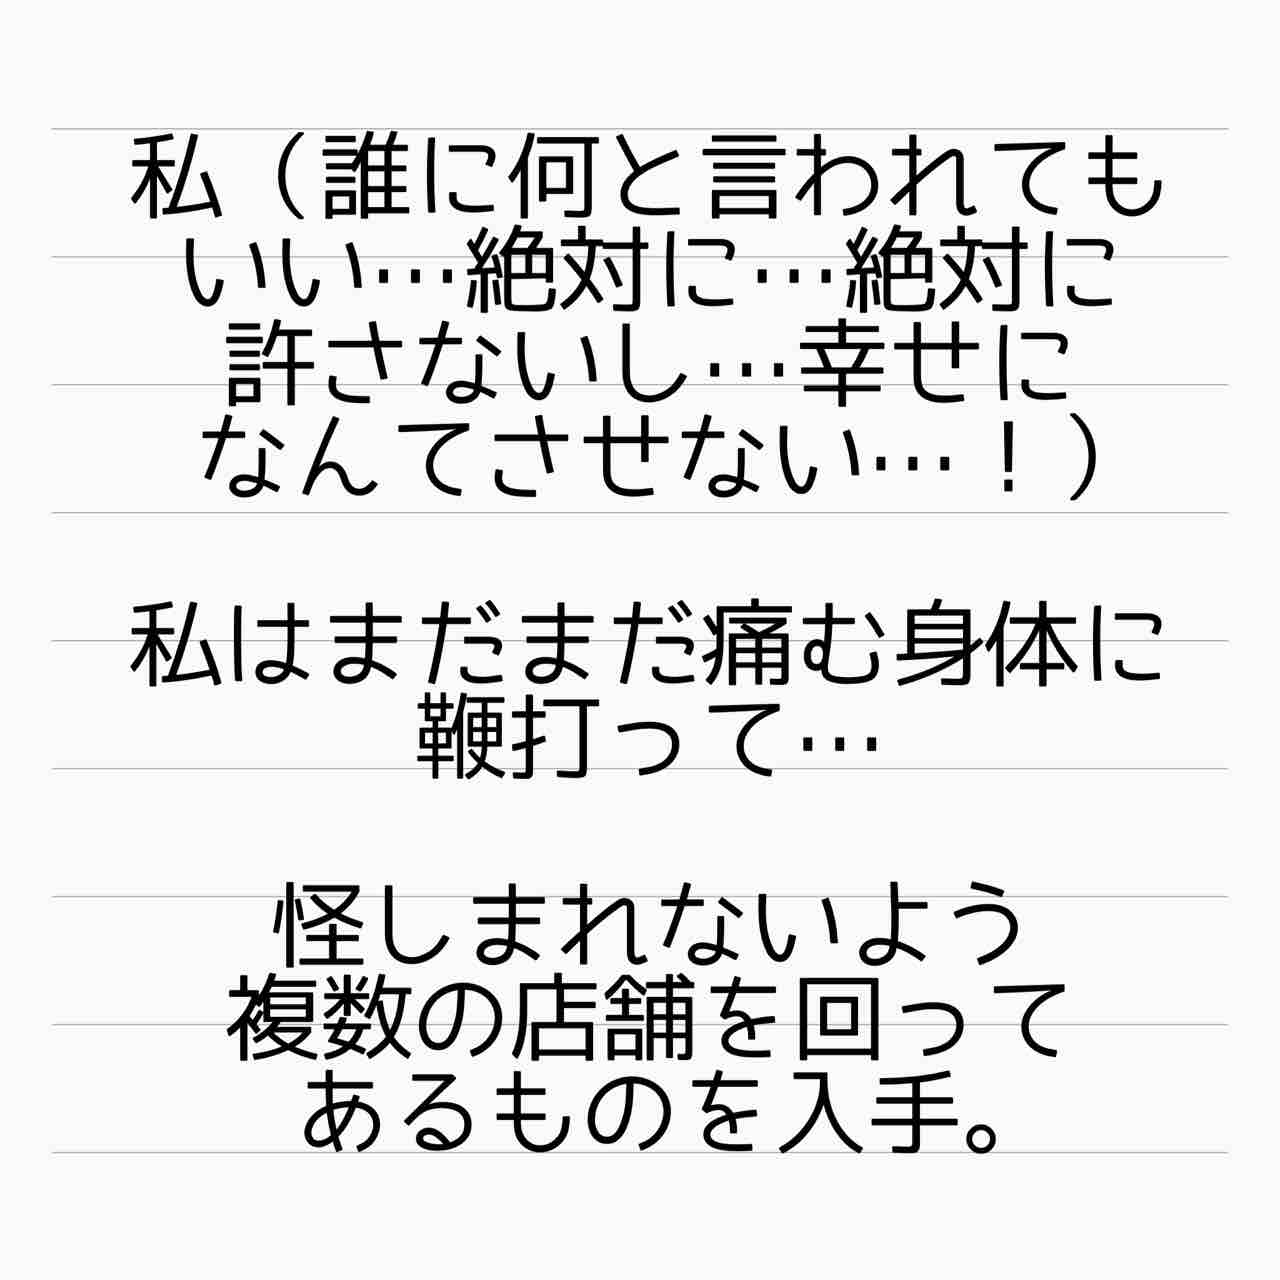 私（誰に何と言われても
いい…絶対に…絶対に
許さないし…幸せに
なんてさせない…！）
私はまだまだ痛む身体に
鞭打って…
怪しまれないよう
複数の店舗を回って
あるものを入手。